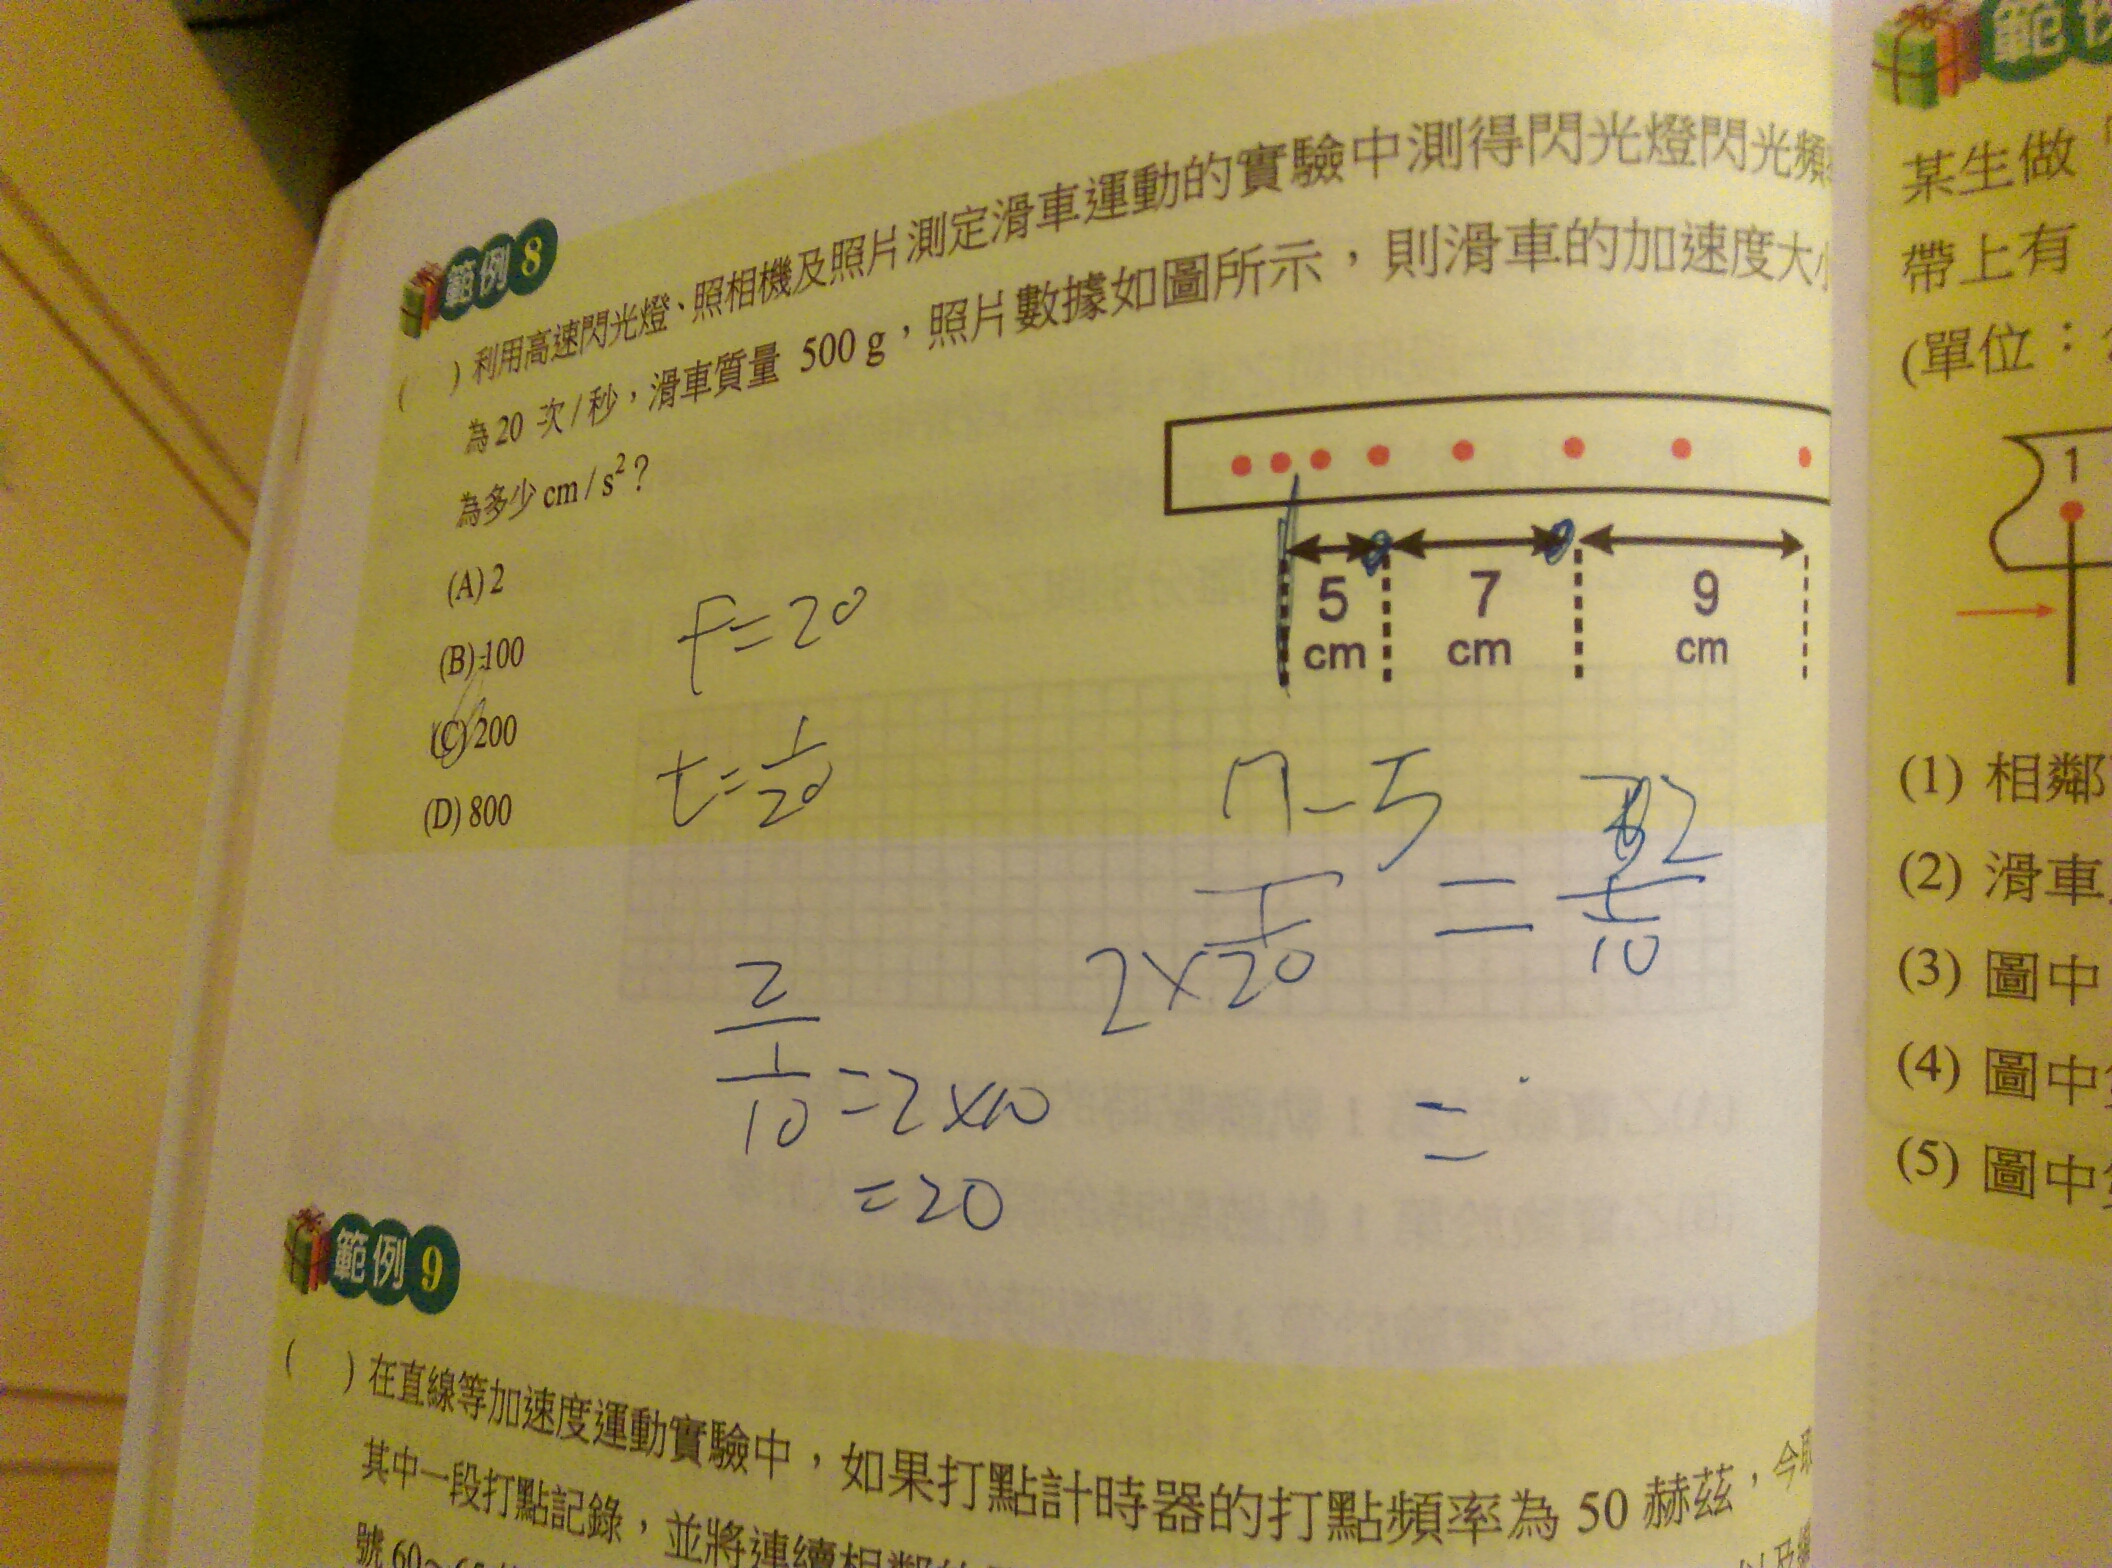 範例 8
( ) 利用高速閃光燈、照相機及照片測定滑車運動的實驗中測得閃光燈閃光頻
為 20 次/秒，滑車質量 500 g，照片數據如圖所示，則滑車的加速度大小
為多少 cm/s²？
(A) 2
(B) 100
(C) 200
(D) 800
5 cm
7 cm
9 cm
f=20
t=1/20
7-5
2×1/20
=
2
1/10
=
2
1/10
=2×10
=20
範例 9
( ) 在直線等加速度運動實驗中，如果打點計時器的打點頻率為 50 赫茲，今
其中一段打點記錄，並將連續相鄰
號 60~
範
某生做「
帶上有
(單位：
1
(1) 相鄰
(2) 滑車
(3) 圖中
(4) 圖中
(5) 圖中